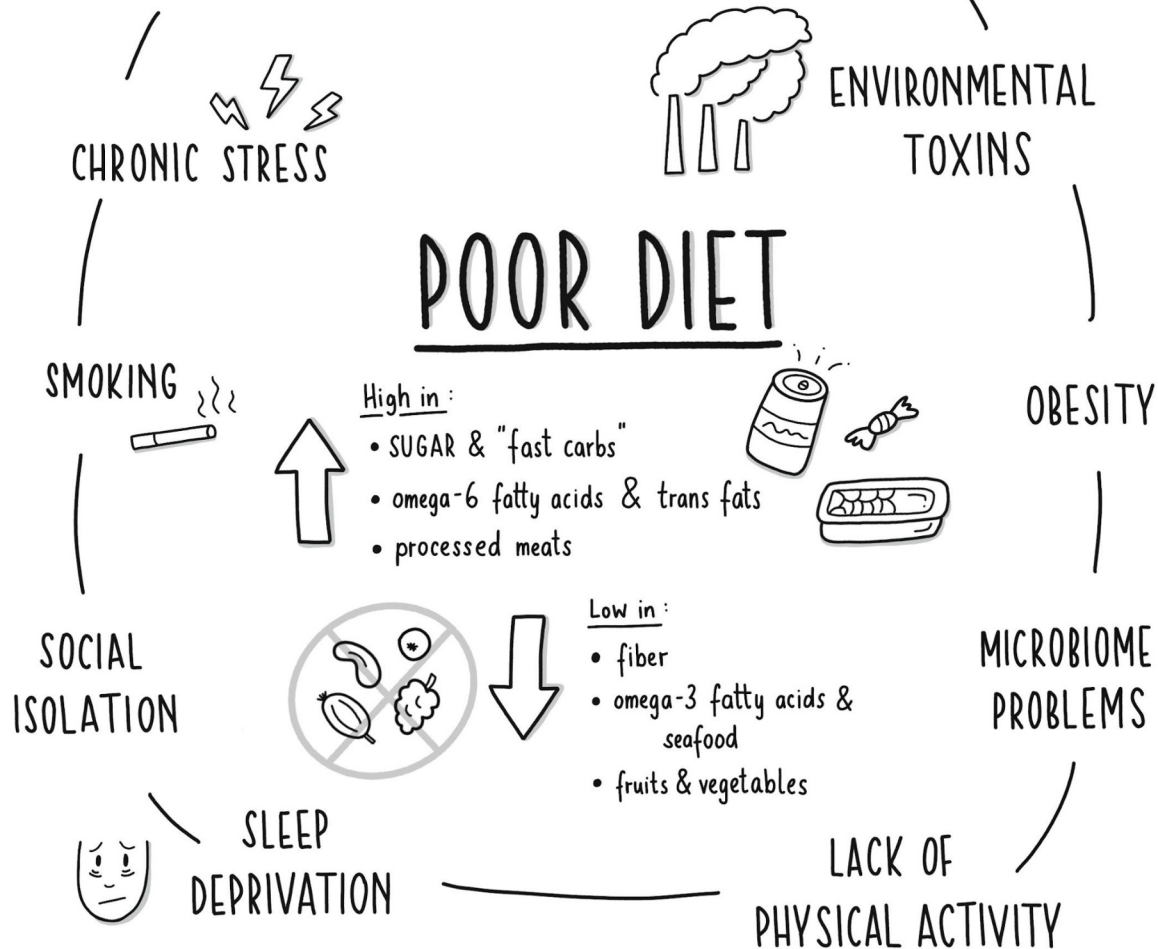 CHRONIC STRESS
ENVIRONMENTAL
TOXINS
POOR DIET
SMOKING
High in :
• SUGAR & "fast carbs"
• omega-6 fatty acids & trans fats
• processed meats
OBESITY
SOCIAL
ISOLATION
Low in :
• fiber
• omega-3 fatty acids &
seafood
• fruits & vegetables
MICROBIOME
PROBLEMS
SLEEP
DEPRIVATION
LACK OF
PHYSICAL ACTIVITY